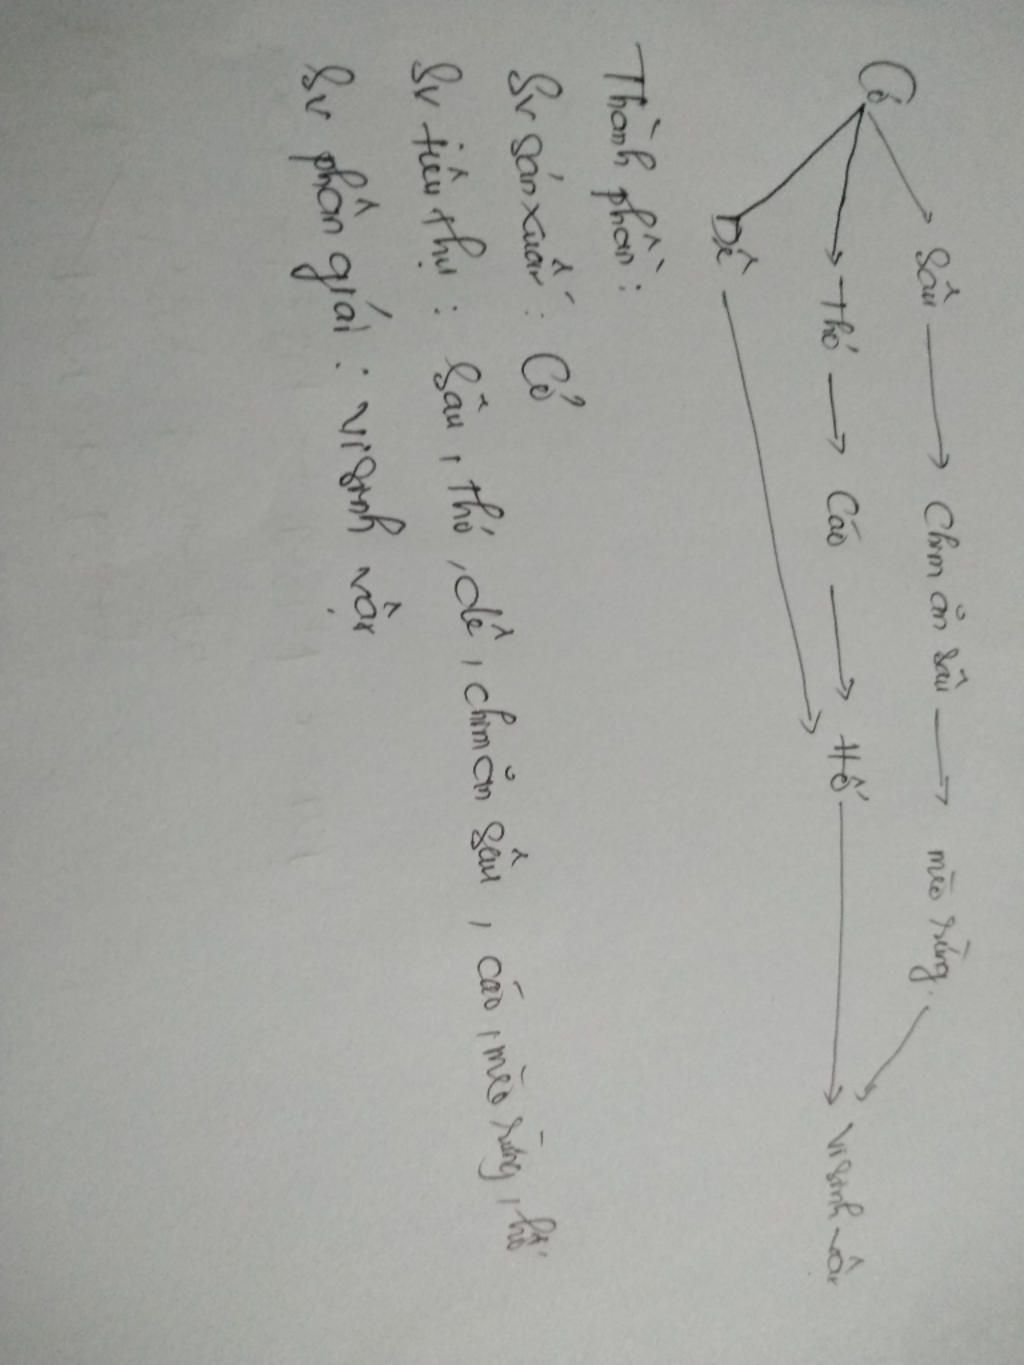 Cỏ → Sâu → Chim ăn sâu → mèo rừng.
→ Thỏ → Cáo → Hổ → Vi sinh vật
Dê
Thành phần:
Sv sản xuất: Cỏ
Sv tiêu thụ: Sâu, thỏ, dê, chim ăn sâu, cáo, mèo rừng, hổ
Sv phân giải: vi sinh vật